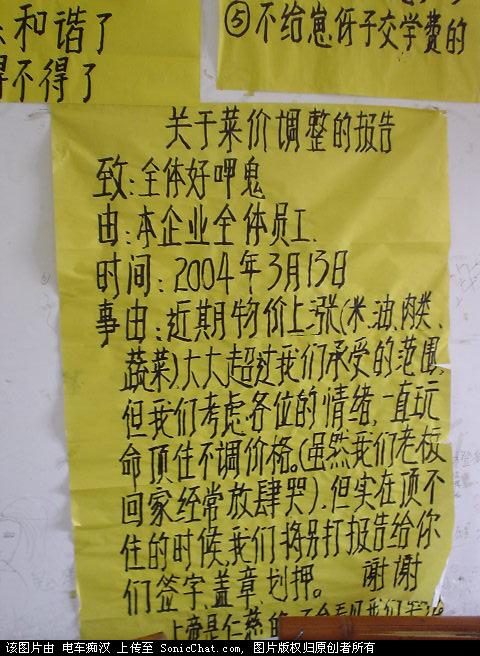 和谐了
得不得了
⑤不给崽伢子交学费的
关于菜价调整的报告
致:全体好呷鬼
由:本企业全体员工.
时间:2004年3月13日
事由:近期物价上涨(米、油、肉类、
蔬菜)大大超过我们承受的范围,
但我们考虑各位的情绪,一直玩
命顶住不调价格。(虽然我们老板
回家经常放肆哭).但实在顶不
住的时候,我们将另打报告给你
们签字、盖章、划押。 谢谢
上帝是仁慈的
该图片由 电车痴汉 上传至 SonicChat.com, 图片版权归原创者所有